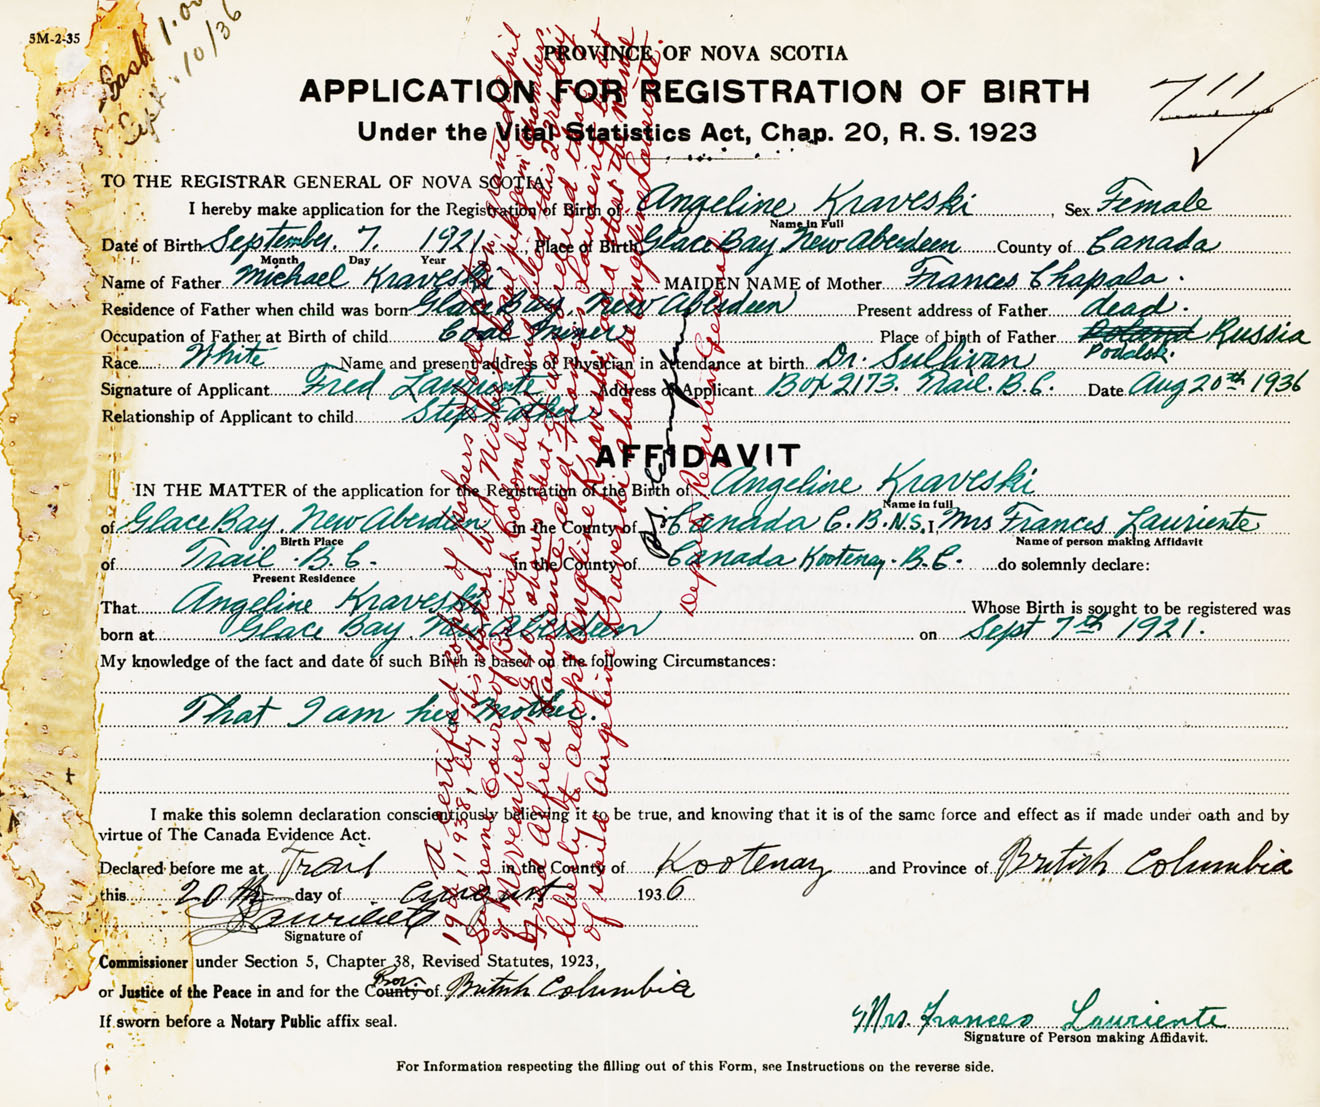 5M-2-35
Cash 1.00
10/36
PROVINCE OF NOVA SCOTIA
APPLICATION FOR REGISTRATION OF BIRTH
711
Under the Vital Statistics Act, Chap. 20, R. S. 1923
TO THE REGISTRAR GENERAL OF NOVA SCOTIA:
I hereby make application for the Registration of Birth of Angeline Kraveski, Sex Female
Name in Full
Date of Birth September. 7. 1921 Place of Birth Glace Bay, New Aberdeen County of Canada
Month Day Year
Name of Father Michael Kraveski MAIDEN NAME of Mother Frances Chapala.
Residence of Father when child was born Glace Bay, New Aberdeen Present address of Father dead.
Occupation of Father at Birth of child Coal Miner Place of birth of Father Poland Russia
Podolsk.
Race White Name and present address of Physician in attendance at birth Dr. Sullivan
Signature of Applicant Fred Lauriente Address of Applicant Box 2173. Trail. B.C. Date Aug 20th 1936
Relationship of Applicant to child Step Father
AFFIDAVIT
IN THE MATTER of the application for the Registration of the Birth of Angeline Kraveski
Name in full
of Glace Bay, New Aberdeen in the County of Canada C.B.N.S., I, Mrs Frances Lauriente
Birth Place Name of person making Affidavit
of Trail. B.C. in the County of Canada Kootenay. B.C. do solemnly declare:
Present Residence
That Angeline Kraveski Whose Birth is sought to be registered was
born at Glace Bay. New Aberdeen on Sept 7th 1921.
My knowledge of the fact and date of such Birth is based on the following Circumstances:
That I am her mother.
I make this solemn declaration conscientiously believing it to be true, and knowing that it is of the same force and effect as if made under oath and by
virtue of The Canada Evidence Act.
Declared before me at Trail in the County of Kootenay and Province of British Columbia
this 20th day of August 1936
Signature of
Commissioner under Section 5, Chapter 38, Revised Statutes, 1923,
or Justice of the Peace in and for the County of Prov. British Columbia
If sworn before a Notary Public affix seal.
Mrs. Frances Lauriente
Signature of Person making Affidavit.
For Information respecting the filling out of this Form, see Instructions on the reverse side.
A certified copy of papers dated April
19th, 1938, by His Honor W.A. Nisbet, Local Judge in Chambers
Supreme Court of British Columbia and filed this 23rd day
of November, 1940 shows that it was ordered that
Fred Alfred Lauriente and Frances Lauriente be at
liberty to adopt Angeline Kraveski and that the name
of said Angeline Kraveski shall be Angeline Lauriente.
Deputy Registrar General